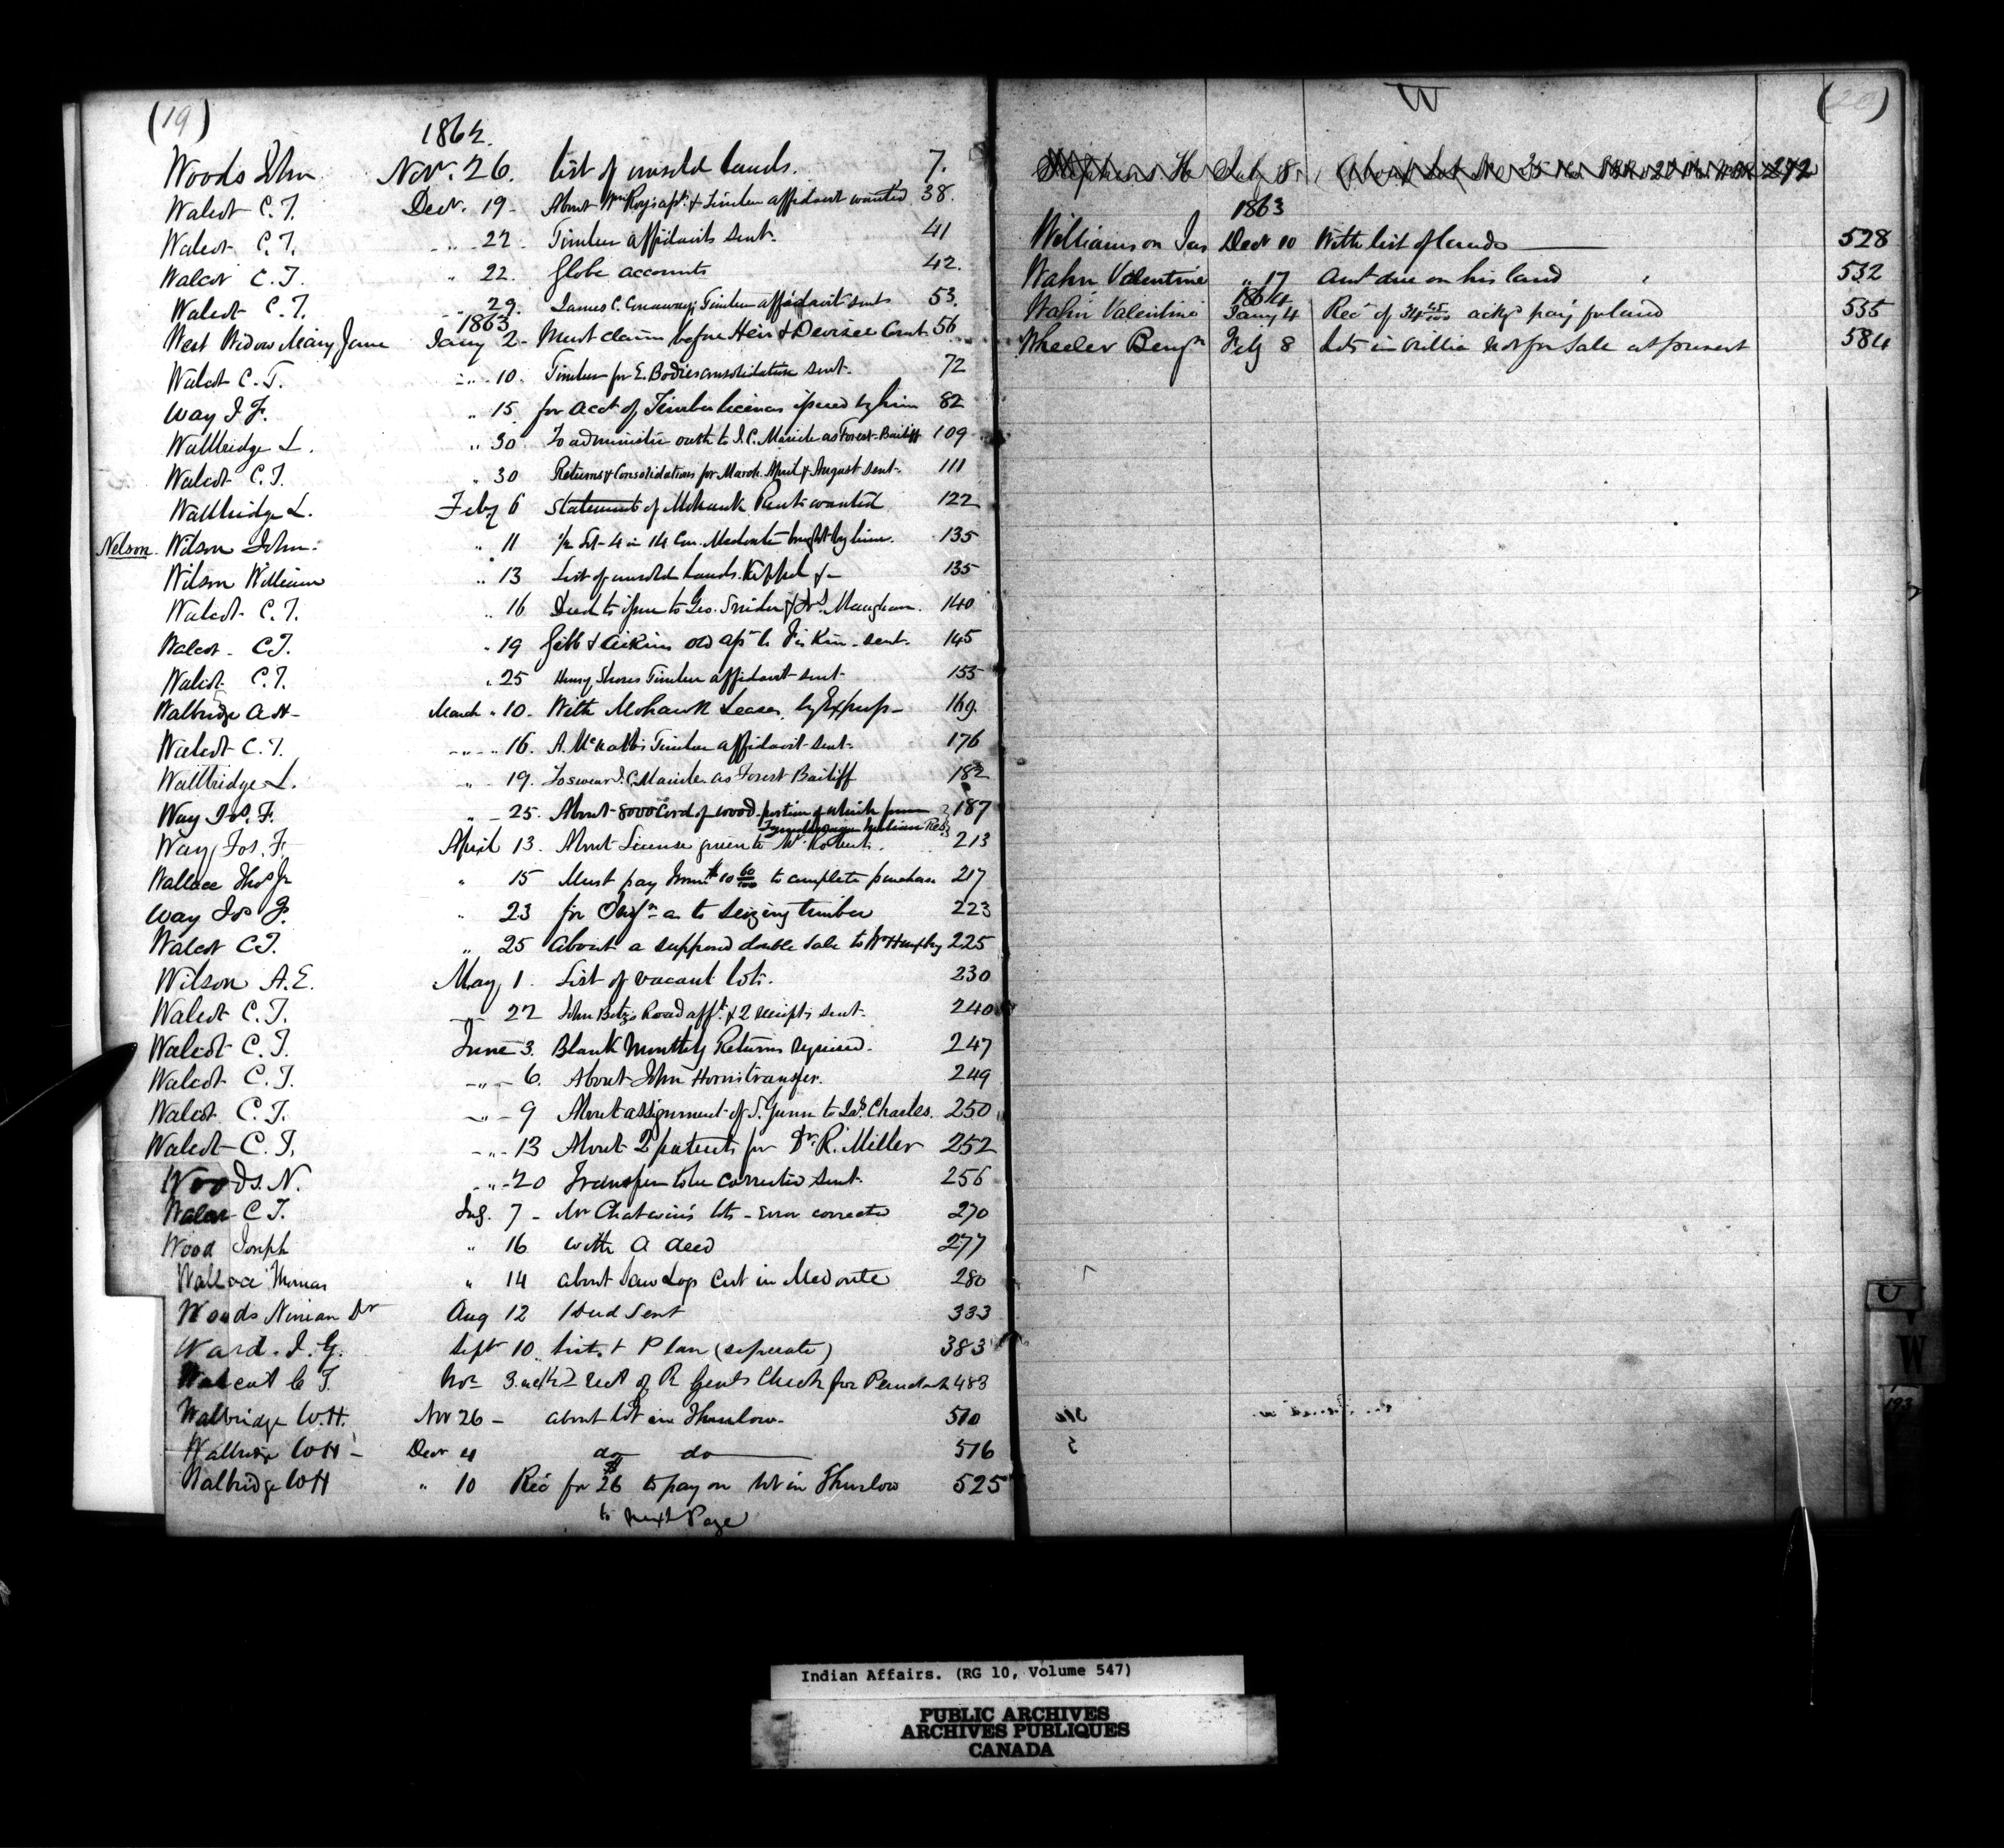 (19)
1862.
Woods John Nov. 26. List of unsold lands. 7.
Walcot C. T. Decr. 19 - About Wm Roy's apn. & Timber affidavit wanted 38.
Walcot C. T. " 22 - Timber affidavits sent. 41
Walcot C. T. " 22. Globe accounts 42.
Walcot C. T. " 29. James C. Conaways Timber affidavit sent 53.
1863
West Widow Mary Jane Jany 2 - Must claim before Heir & Devisee Comt 56
Walcot C. T. " 10. Timber for E. Bodies consolidation sent. 72
Way J. F. " 15 for acct of Timber licences issued by him 82
Wallbridge L. " 30 To administer oath to J. C. Maricle as Forest-Bailiff 109
Walcot C. T. " 30 Returns & Consolidations for March April & August sent. 111
Wallbridge L. Feby 6 Statement of Mohawk Rents wanted 122
Nelson. Wilson John. " 11 1/2 Lot 4 in 14 Con. Medonte bought by him. 135
Wilson William " 13 List of unsold lands. Keppel &- 135
Walcot C. T. " 16 Deed to issue to Geo. Snider & Maugham. 140
Walcot C. T. " 19 Gibb & Aikins old apn to sent. 145
Walcot C. T. " 25 Henry Shores Timber affidavit sent. 155
Walbridge A H - March " 10. With Mohawk Leases, by Express - 169.
Walcot C. T. " 16. A. McNabbs Timber affidavit sent. 176
Wallbridge L. " 19. To swear J. C. Maricle as Forest Bailiff 182
Way Jos. F. " 25. About 8000 Cord of wood, portion of which from 187
Tyendinaga Indian Res.
Way Jos. F. April 13. About License given to Mr. Roberts. 213
Wallace Thos Jr " 15 Must pay $10 60/100 to complete purchase 217
Way Jos F. " 23 for as to seizing timber 223
Walcot C T. " 25 about a supposed double sale to Wm Humphry 225
Wilson A. E. May 1. List of vacant lots. 230
Walcot C. T. " 22 John Betzs Road afft. & 2 receipts sent. 240
Walcot C. T. June 3. Blank Monthly Returns required. 247
Walcot C. T. " 6. About John Horns transfer. 249
Walcot C. T. " 9 About assignment of S. Gunn to Jas. Charles. 250
Walcot C. T. " 13 About 2 patents for Dr. R. Miller 252
Woods. N. " 20 Transfer to be corrected sent. 256
Walcot C T. July. 7 - Mr Chatwin's lots - Error corrected 270
Wood Joseph " 16 with a deed 277
Wallace Thomas " 14 about saw Logs Cut in Medonte 280
Woods Ninian Dr Aug 12 1 Deed Sent 333
Ward. J. G. Sept 10 List. & Plan (seperate) 383
Walcot C T. Nov 3. ackd rect of R Gents Check for 483
Walbridge W. H. Nov 26 - about lot in Thurlow - 510
Walbridge W H - Decr 4 do do 516
Walbridge W H " 10 Rec for $26 to pay on lot in Thurlow 525
to next Page
W
(20)
Stephens H July 8. About Lot No 35 272
1863
Williamson Jas Decr 10 With list of lands 528
Wahn Valentine " 17 Amt due on his land 532
1864
Wahn Valentine Jany 4 Rec of 34 25/100 ackg payt for land 535
Wheeler Benjn Feby 8 Lots in Orillia not for Sale at present 584
U
W
Indian Affairs. (RG 10, Volume 547)
PUBLIC ARCHIVES
ARCHIVES PUBLIQUES
CANADA